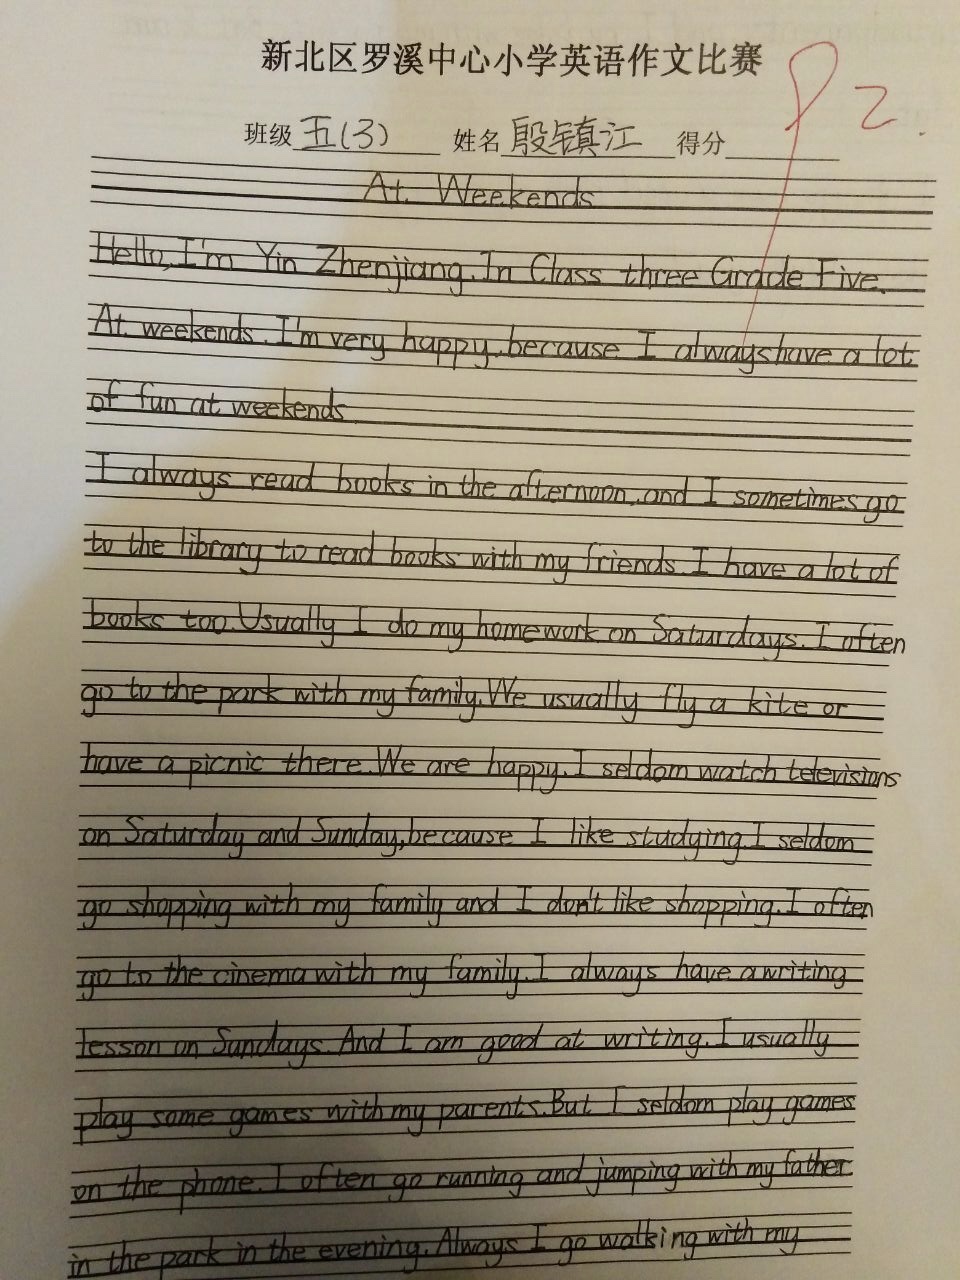 新北区罗溪中心小学英语作文比赛
92.
班级 五(3) 姓名 殷镇江 得分
At Weekends
Hello, I'm Yin Zhenjiang. In Class three Grade Five.
At weekends. I'm very happy, because I always have a lot
of fun at weekends
I always read books in the afternoon, and I sometimes go
to the library to read books with my friends. I have a lot of
books too. Usually I do my homework on Saturdays. I often
go to the park with my family. We usually fly a kite or
have a picnic there. We are happy. I seldom watch televisions
on Saturday and Sunday, because I like studying. I seldom
go shopping with my family and I don't like shopping. I often
go to the cinema with my family. I always have a writing
lesson on Sundays. And I am good at writing. I usually
play some games with my parents. But I seldom play games
on the phone. I often go running and jumping with my father
in the park in the evening. Always I go walking with my